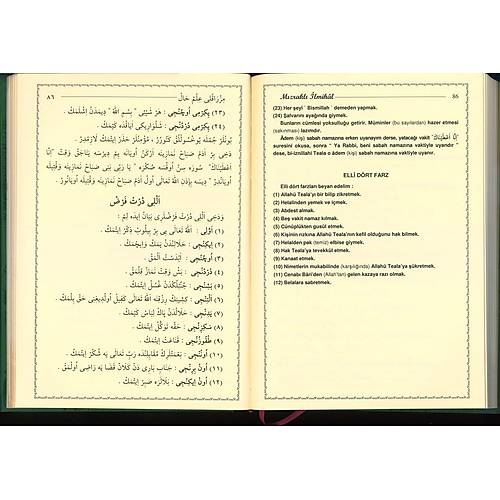 ٨٦
مِزْرَاقْلِى عِلْمِ حَالْ
(٢٣) يِكِرْمِى اُوچُنْجِى : هَرْ شَيْئِى " بِسْمِ اللّٰهْ " دِيمَدَنْ اِشْلَمَكْ .
(٢٤) يِكِرْمِى دُرْدُنْجِى : شَلْوَارِينِى اَيَاقْدَه كَيْمَكْ .
اَللِى دُرْتْ فَرْضْ
وَدَخِى اَللِى دُرْتْ فَرْضْلَرِى بَيَانْ اِيدَه لِمْ :
(١) اَوَّلِى : اَللّٰهُ تَعَالَى يِى بِرْ بِيلُوبْ ذِكْرْ اِيتْمَكْ .
(٢) اِيكِنْجِى : حَلَالِنْدَنْ يَمَكْ وَاِيچْمَكْ .
(٣) اُوچُنْجِى : آبْدَسْتْ آلْمَقْ .
(٤) دُرْدُنْجِى : بَشْ وَقْتْ نَمَازْ قِلْمَقْ .
(٥) بَشِنْجِى : جُنُبْلُكْدَنْ غُسْلْ اِيتْمَكْ .
(٦) آلْتِنْجِى : كِشِينِكْ رِزْقِنَه اَللّٰهُ تَعَالَى كَفِيلْ اُولْدِيغِنِى حَقْ بِلْمَكْ .
(٧) يَدِنْجِى : حَلَالْدَنْ پَاكْ لِبَاسْ كَيْمَكْ .
(٨) سَكِزِنْجِى : حَقَّه تَوَكُّلْ اِيتْمَكْ .
(٩) طُقُوزُنْجِى : قَنَاعَتْ اِيتْمَكْ .
(١٠) اُونُنْجِى : نِعْمَتْلَرِكْ مُقَابِلِنْدَه رَبِّ تَعَالَى يَه شُكُرْ اِيتْمَكْ .
(١١) اُونْ بِرِنْجِى : جَنَابِ بَارِى دَنْ كَلَانْ قَضَا يَه رَاضِى اُولْمَقْ .
(١٢) اُونْ اِيكِنْجِى : بَلَالَرَه صَبِرْ اِيتْمَكْ .
Mızraklı İlmihâl
86
(23) Her şeyi ¨ Bismillah ¨ demeden yapmak.
(24) Şalvarını ayağında giymek.
Bunların cümlesi yoksulluğu getirir. Müminler (bu sayılardan) hazer etmesi
(sakınması) lazımdır.
Âdem (kişi) sabah namazına erken uyanayım derse, yatacağı vakit " اِنَّا اَعْطَيْنَاكَ "
suresini okusa, sonra " Ya Rabbi, beni sabah namazına vaktiyle uyandır "
dese, bi-iznillahi Teala o âdem (kişi) sabah namazına vaktiyle uyanır.
ELLİ DÖRT FARZ
Elli dört farzları beyan edelim :
(1) Allahü Teala'yı bir bilip zikretmek.
(2) Helalinden yemek ve içmek.
(3) Abdest almak.
(4) Beş vakit namaz kılmak.
(5) Cünüplükten gusül etmek.
(6) Kişinin rızkına Allahü Teala'nın kefil olduğunu hak bilmek.
(7) Helalden pak (temiz) elbise giymek.
(8) Hak Teala'ya tevekkül etmek.
(9) Kanaat etmek.
(10) Nimetlerin mukabilinde (karşılığında) Allahü Teala'ya şükretmek.
(11) Cenabı Bâri'den (Allah'tan) gelen kazaya razı olmak.
(12) Belalara sabretmek.